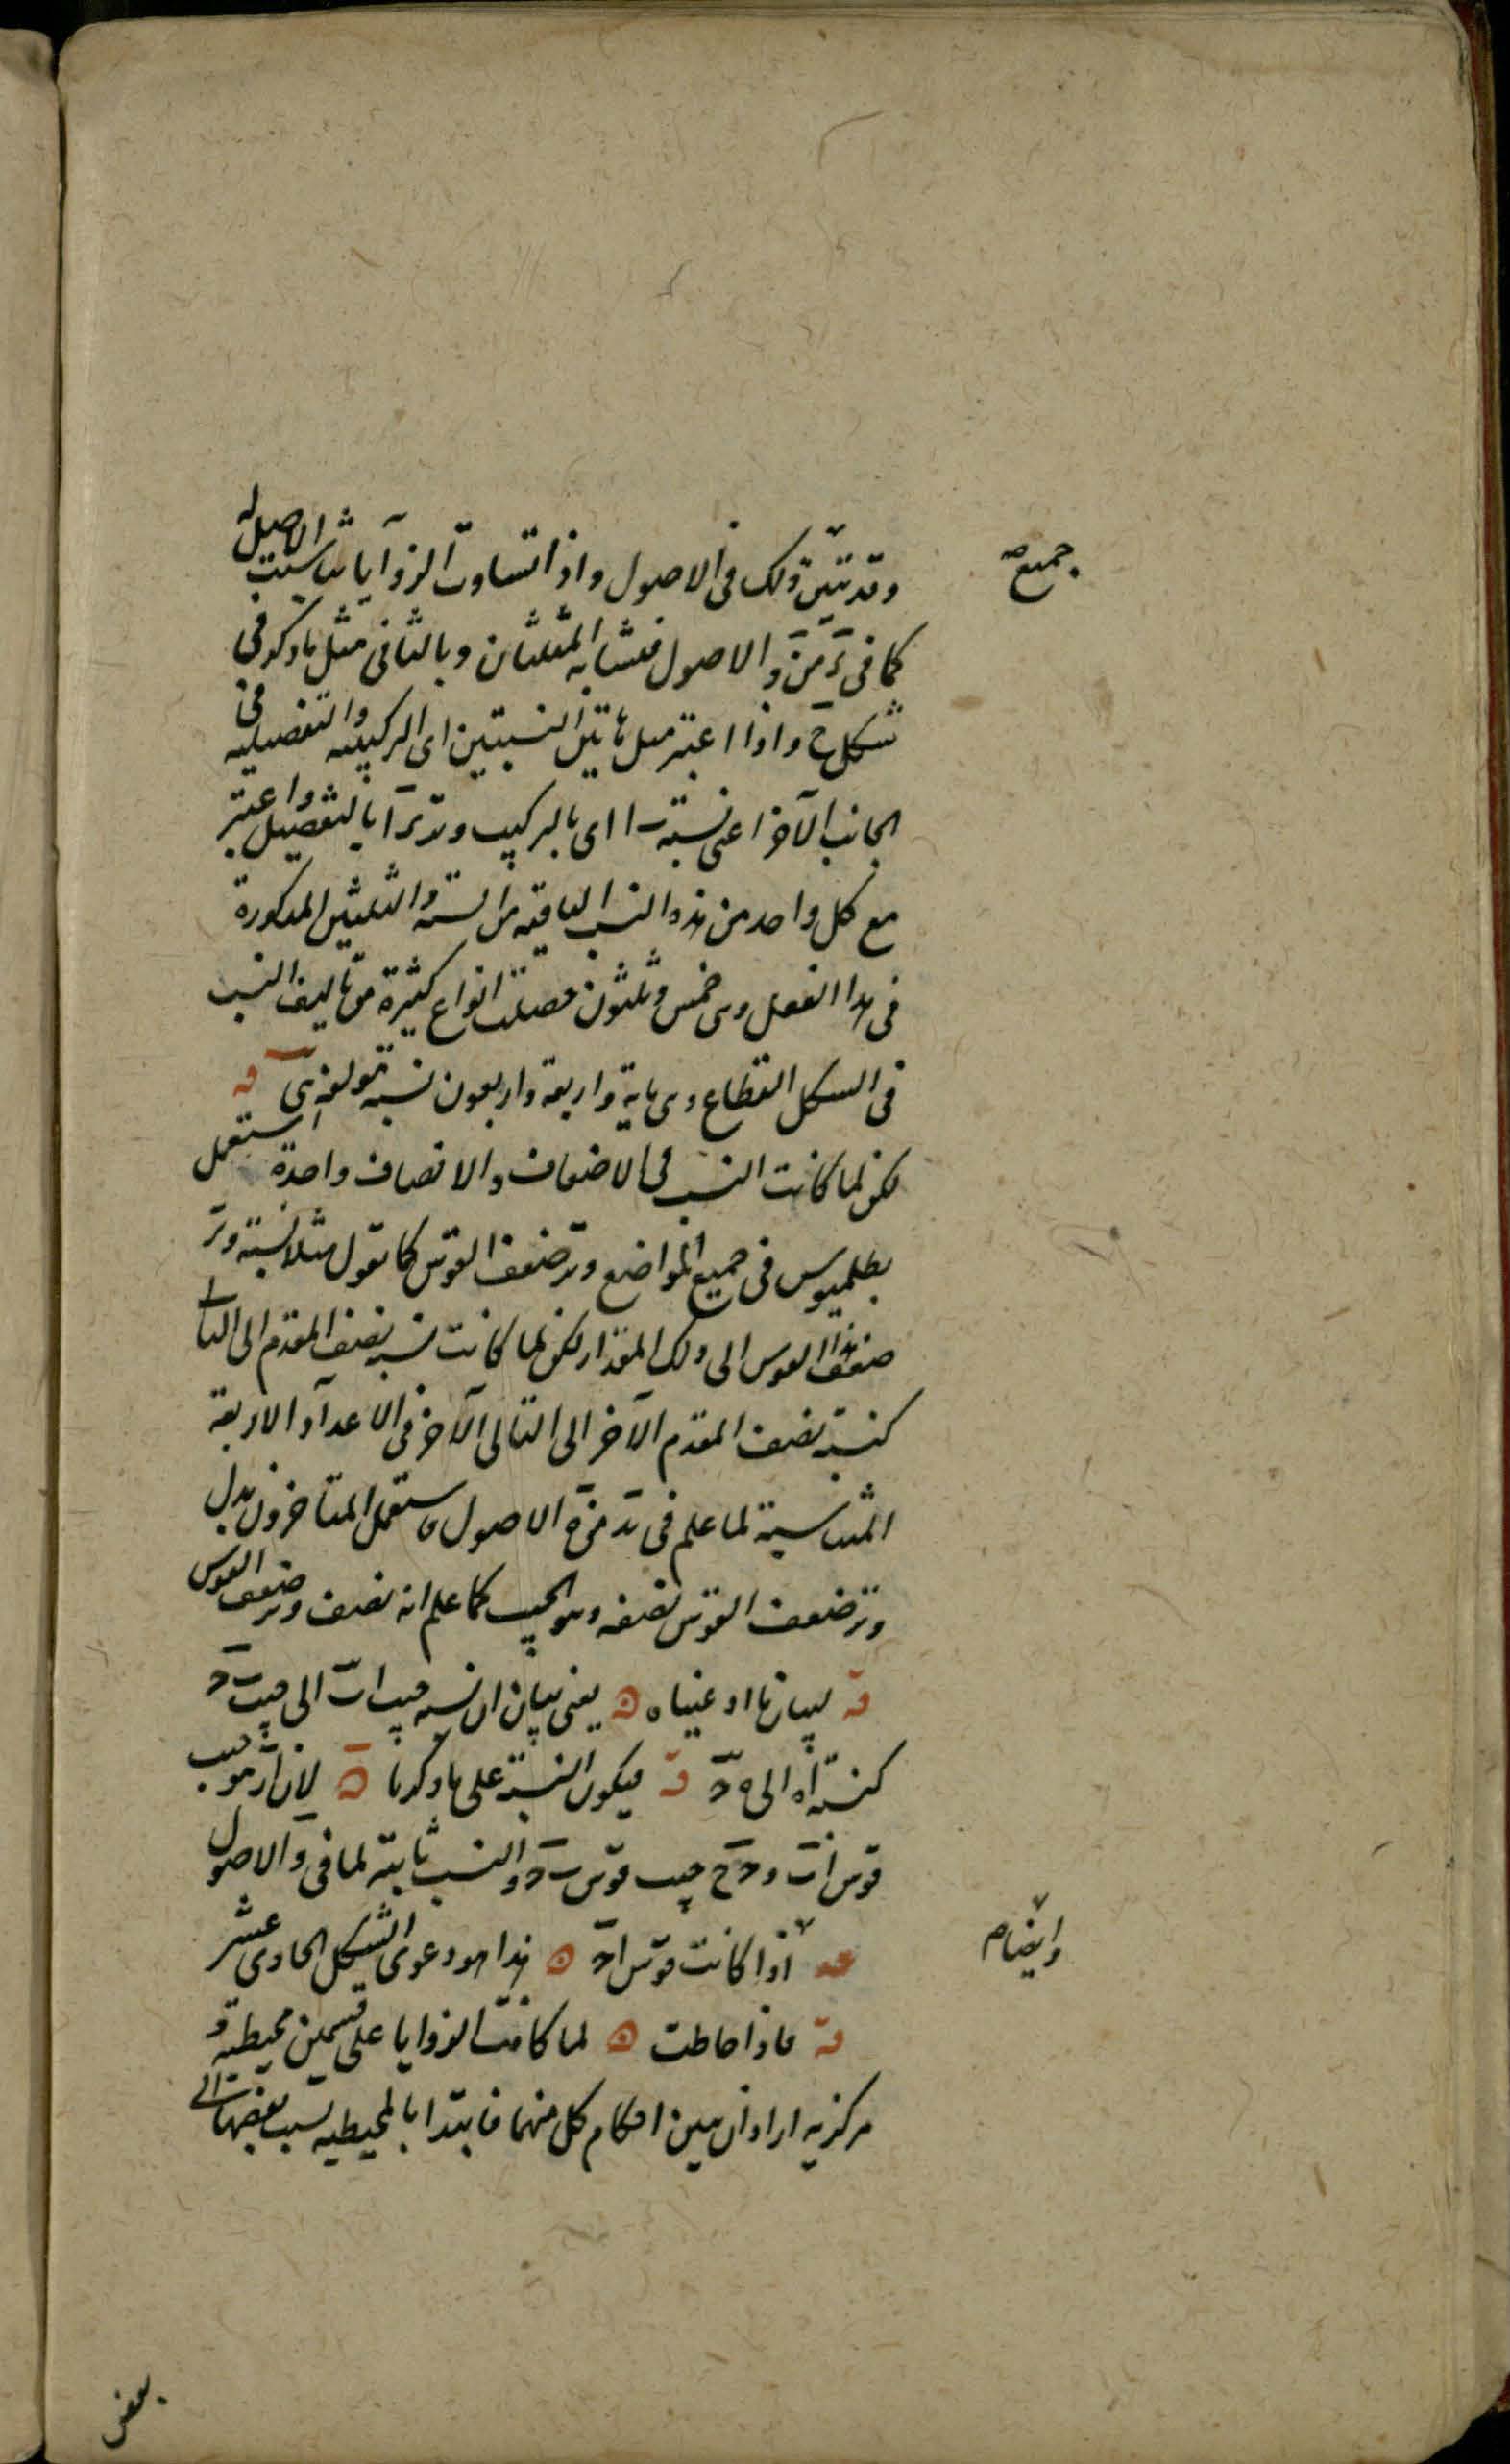 وقد تبين ذلك فى الاصول واذا تساوت الزوآيا تناسبت الاضلاع
جميع صح
كما فى من و الاصول فتشابه المثلثان وبالثانى مثل ما ذكر فى
شكل ح واذا اعتبر مثل هاتين النسبتين اى التركيبيه والتفصيليه فى
الجانب الآخر اعنى نسبة اى بالتركيب و بالتفصيل واعتبر
مع كل واحد من هذه النسب الباقية من الستة والثلثين المذكورة
فى هذا الفصل وهى خمس وثلثون حصلت انواع كثيرة من تاليف النسب
فى الشكل القطاع وهى ماية واربعة واربعون نسبة مولفة قه
لكن لما كانت النسب فى الاضعاف والانصاف واحدة استعمل
بطلميوس فى جميع المواضع وتر ضعف القوس كما تقول مثلا نسبة وتر
ضعف القوس الى ذلك المقدار لكن لما كانت نسبة نصف المقدم الى التالى
كنسبة نصف المقدم الآخر الى التالى الآخر فى الاعدآد الاربعة
المتناسبة لما علم فى من الاصول استعمل المتاخرون بدل
وتر ضعف القوس نصفه وهو الجيب كما علم انه نصف وتر ضعف القوس
قه لبيان ما ادعيناه ه يعنى بيان ان نسبة جيب اب الى جيب
كنسبة اه الى ه قه فيكون النسبة على ما ذكرنا ه لان ار هو جيب
قوس اب و ح جيب قوس والنسب ثابتة لما فى و الاصول
قه اذا كانت قوس ا ه هذا هو دعوى الشكل الحادى عشر
وايضا صح
قه فاذا احاطت ه لما كانت الزوايا على قسمين محيطية و
مركزيه اراد ان يبين احكام كل منهما فابتدا بالمحيطيه نسب بعضها الى
بعض